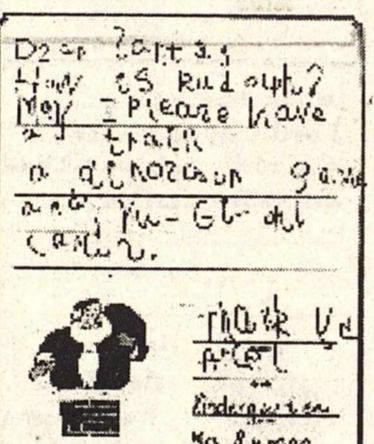 Dear Santa,
How is Rudolph?
May I Please have
a train
a dinosaur game
and Yu-Gi-Oh!
cards.
Thank
Kindergarten